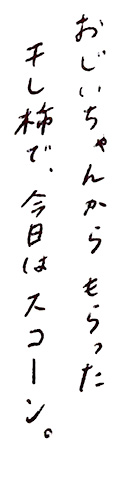 おじいちゃんからもらった
干し柿で、今日はスコーン。